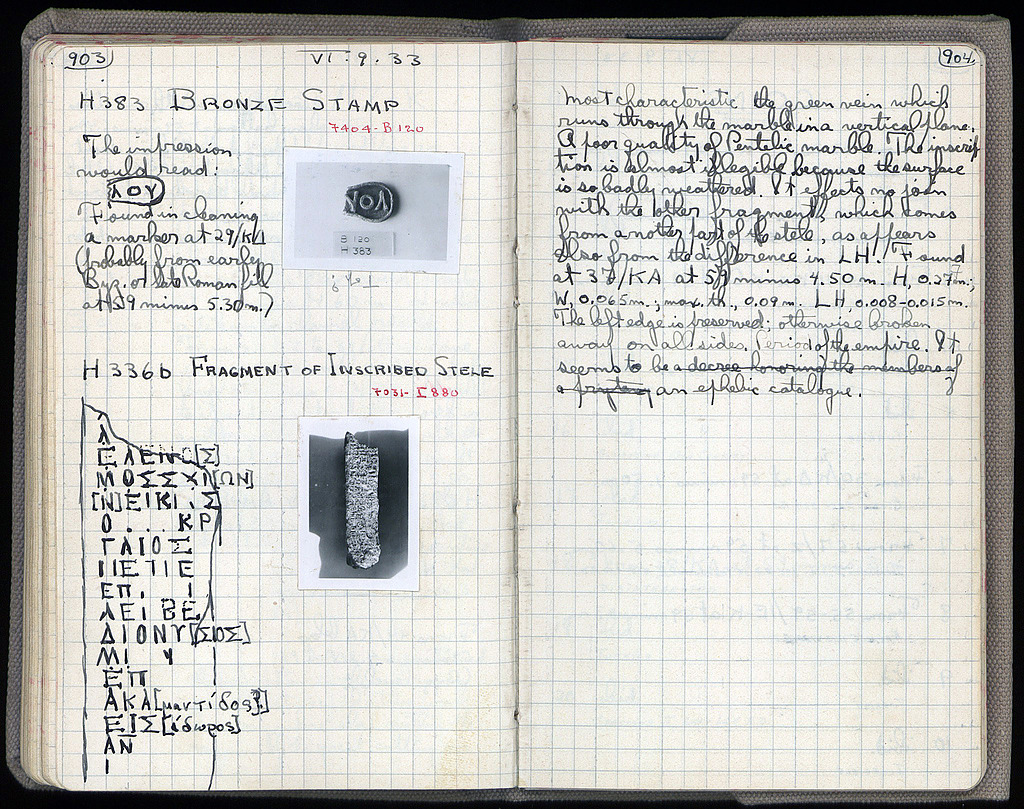 903
VI . 9 . 33
H383 BRONZE STAMP
7404 - B 120
The impression
would read:
ΛΟΥ
Found in cleaning
a marker at 29/ΚΔ
(probably from early
Byz. or late Roman fill
at 59 minus 5.30 m.)
B 120
H 383
H 336b FRAGMENT OF INSCRIBED STELE
7031 - I 880
Λ
ΕΛΕΝΟ[Σ]
ΜΟΣΣΧΙ[ΩΝ]
[Ν]ΕΙΚΙ . Σ
Ο . . . ΚΡ
ΓΑΙΟΣ
ΠΕΤΙΕ
ΕΠ . Ι
ΛΕΙΒΕ
ΔΙΟΝΥ[ΣΟΣ]
ΜΙ Υ
ΕΠ
ΑΚΑ[μαντίδος?]
ΕΙΣ[ίδωρος]
ΑΝ
Ι
904
most characteristic the green vein which
runs through the marble in a vertical plane.
A poor quality of Pentelic marble. The inscrip-
tion is almost illegible because the surface
is so badly weathered. It effects no join
with the other fragment, which comes
from another part of the stele, as appears
also from the difference in LH. Found
at 37/ΚΑ at 59 minus 4.50 m. H, 0.27 m.;
W, 0.065 m.; max. th., 0.09 m. LH 0.008-0.015 m.
The left edge is preserved; otherwise broken
away on all sides. Period of the empire. It
seems to be a decree honoring the members of
a prytany an ephebic catalogue.